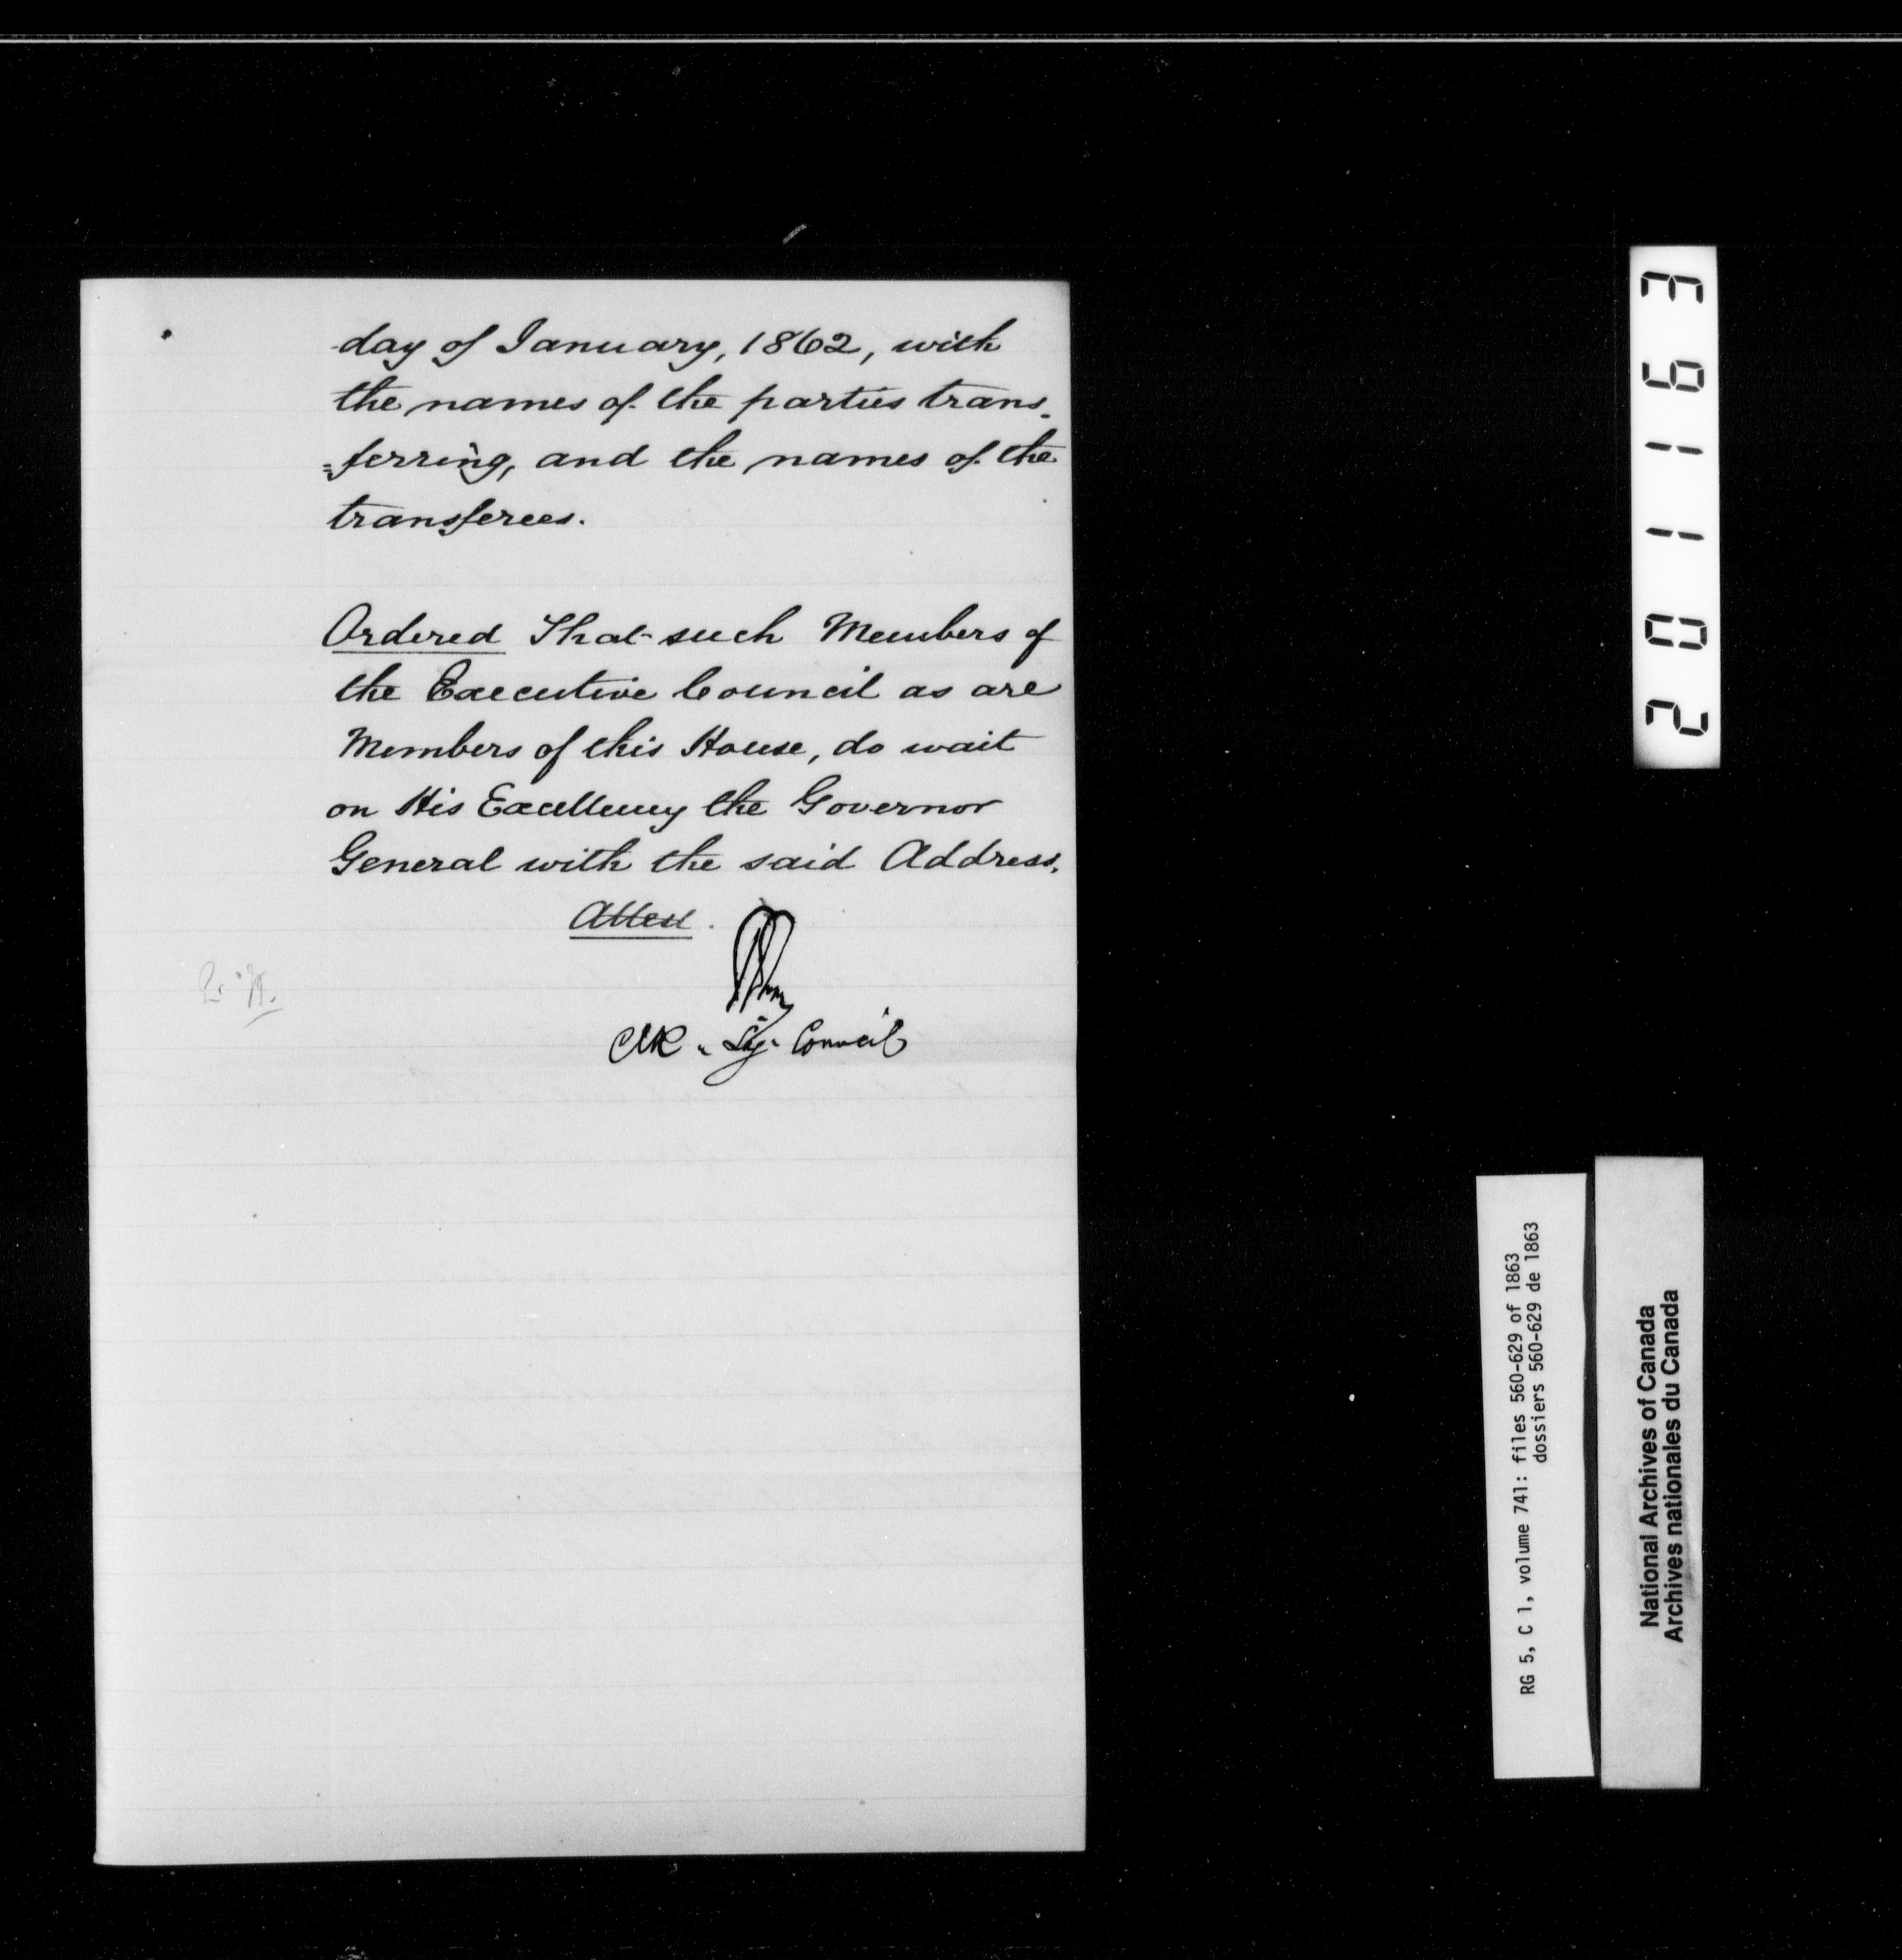 day of January, 1862, with
the names of the parties trans-
=ferring, and the names of the
transferees.
Ordered That such Members of
the Executive Council as are
Members of this House, do wait
on His Excellency the Governor
General with the said Address.
Attest.
Clk. Leg. Council
201163
RG 5, C 1, volume 741: files 560-629 of 1863
dossiers 560-629 de 1863
National Archives of Canada
Archives nationales du Canada